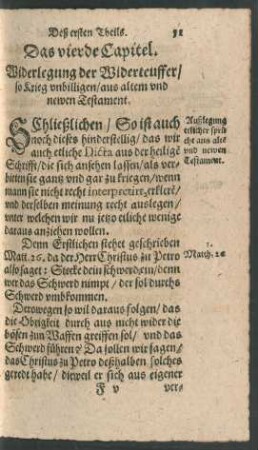 Deß ersten Theils. 91
Das vierde Capitel.
Widerlegung der Widerteuffer/
so Krieg vnbilligen/aus altem vnd
newen Testament.
SChließlichen/ So ist auch
noch dieses hinderstellig/ das wir
auch etliche Dicta aus der heilige
Schrifft/die sich ansehen lassen/als ver-
bieten sie gantz vnd gar zu kriegen/wenn
mann sie nicht recht interpretirt erklert/
vnd derselben meinung recht auslegen/
vnter welchen wir nu jetzo etliche wenige
daraus anziehen wollen.
Außlegung
etlicher sprü
cht aus alt
vnd newen
Testament.
Denn Erstlichen stehet geschrieben
Matt. 26. da der Herr Christus zu Petro
also saget: Stecke dein schwerd ein/denn
wer das Schwerd nimpt/ der sol durchs
Schwerd vmbkommen.
1.
Matth. 26
Derowegen so wil daraus folgen/ das
die Obrigkeit durch aus nicht wider die
bösen zun Waffen greiffen sol/ vnd das
Schwerd führen? Da sollen wir sagen/
das Christus zu Petro deßhalben solches
geredt habe/ dieweil er sich aus eigener
F v vers